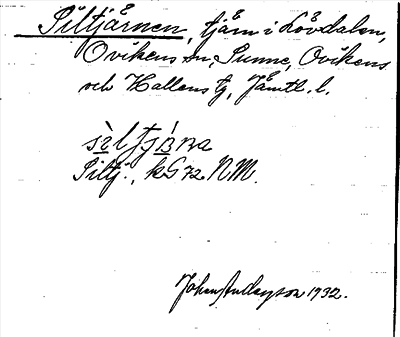 Siltjärnen, tjärn i Lövdalen,
Ovikens sn, Sunne, Ovikens
och Hallens tg, Jämtl. l.
Siltj., kG 72 NM.
Johan Anderson 1932.